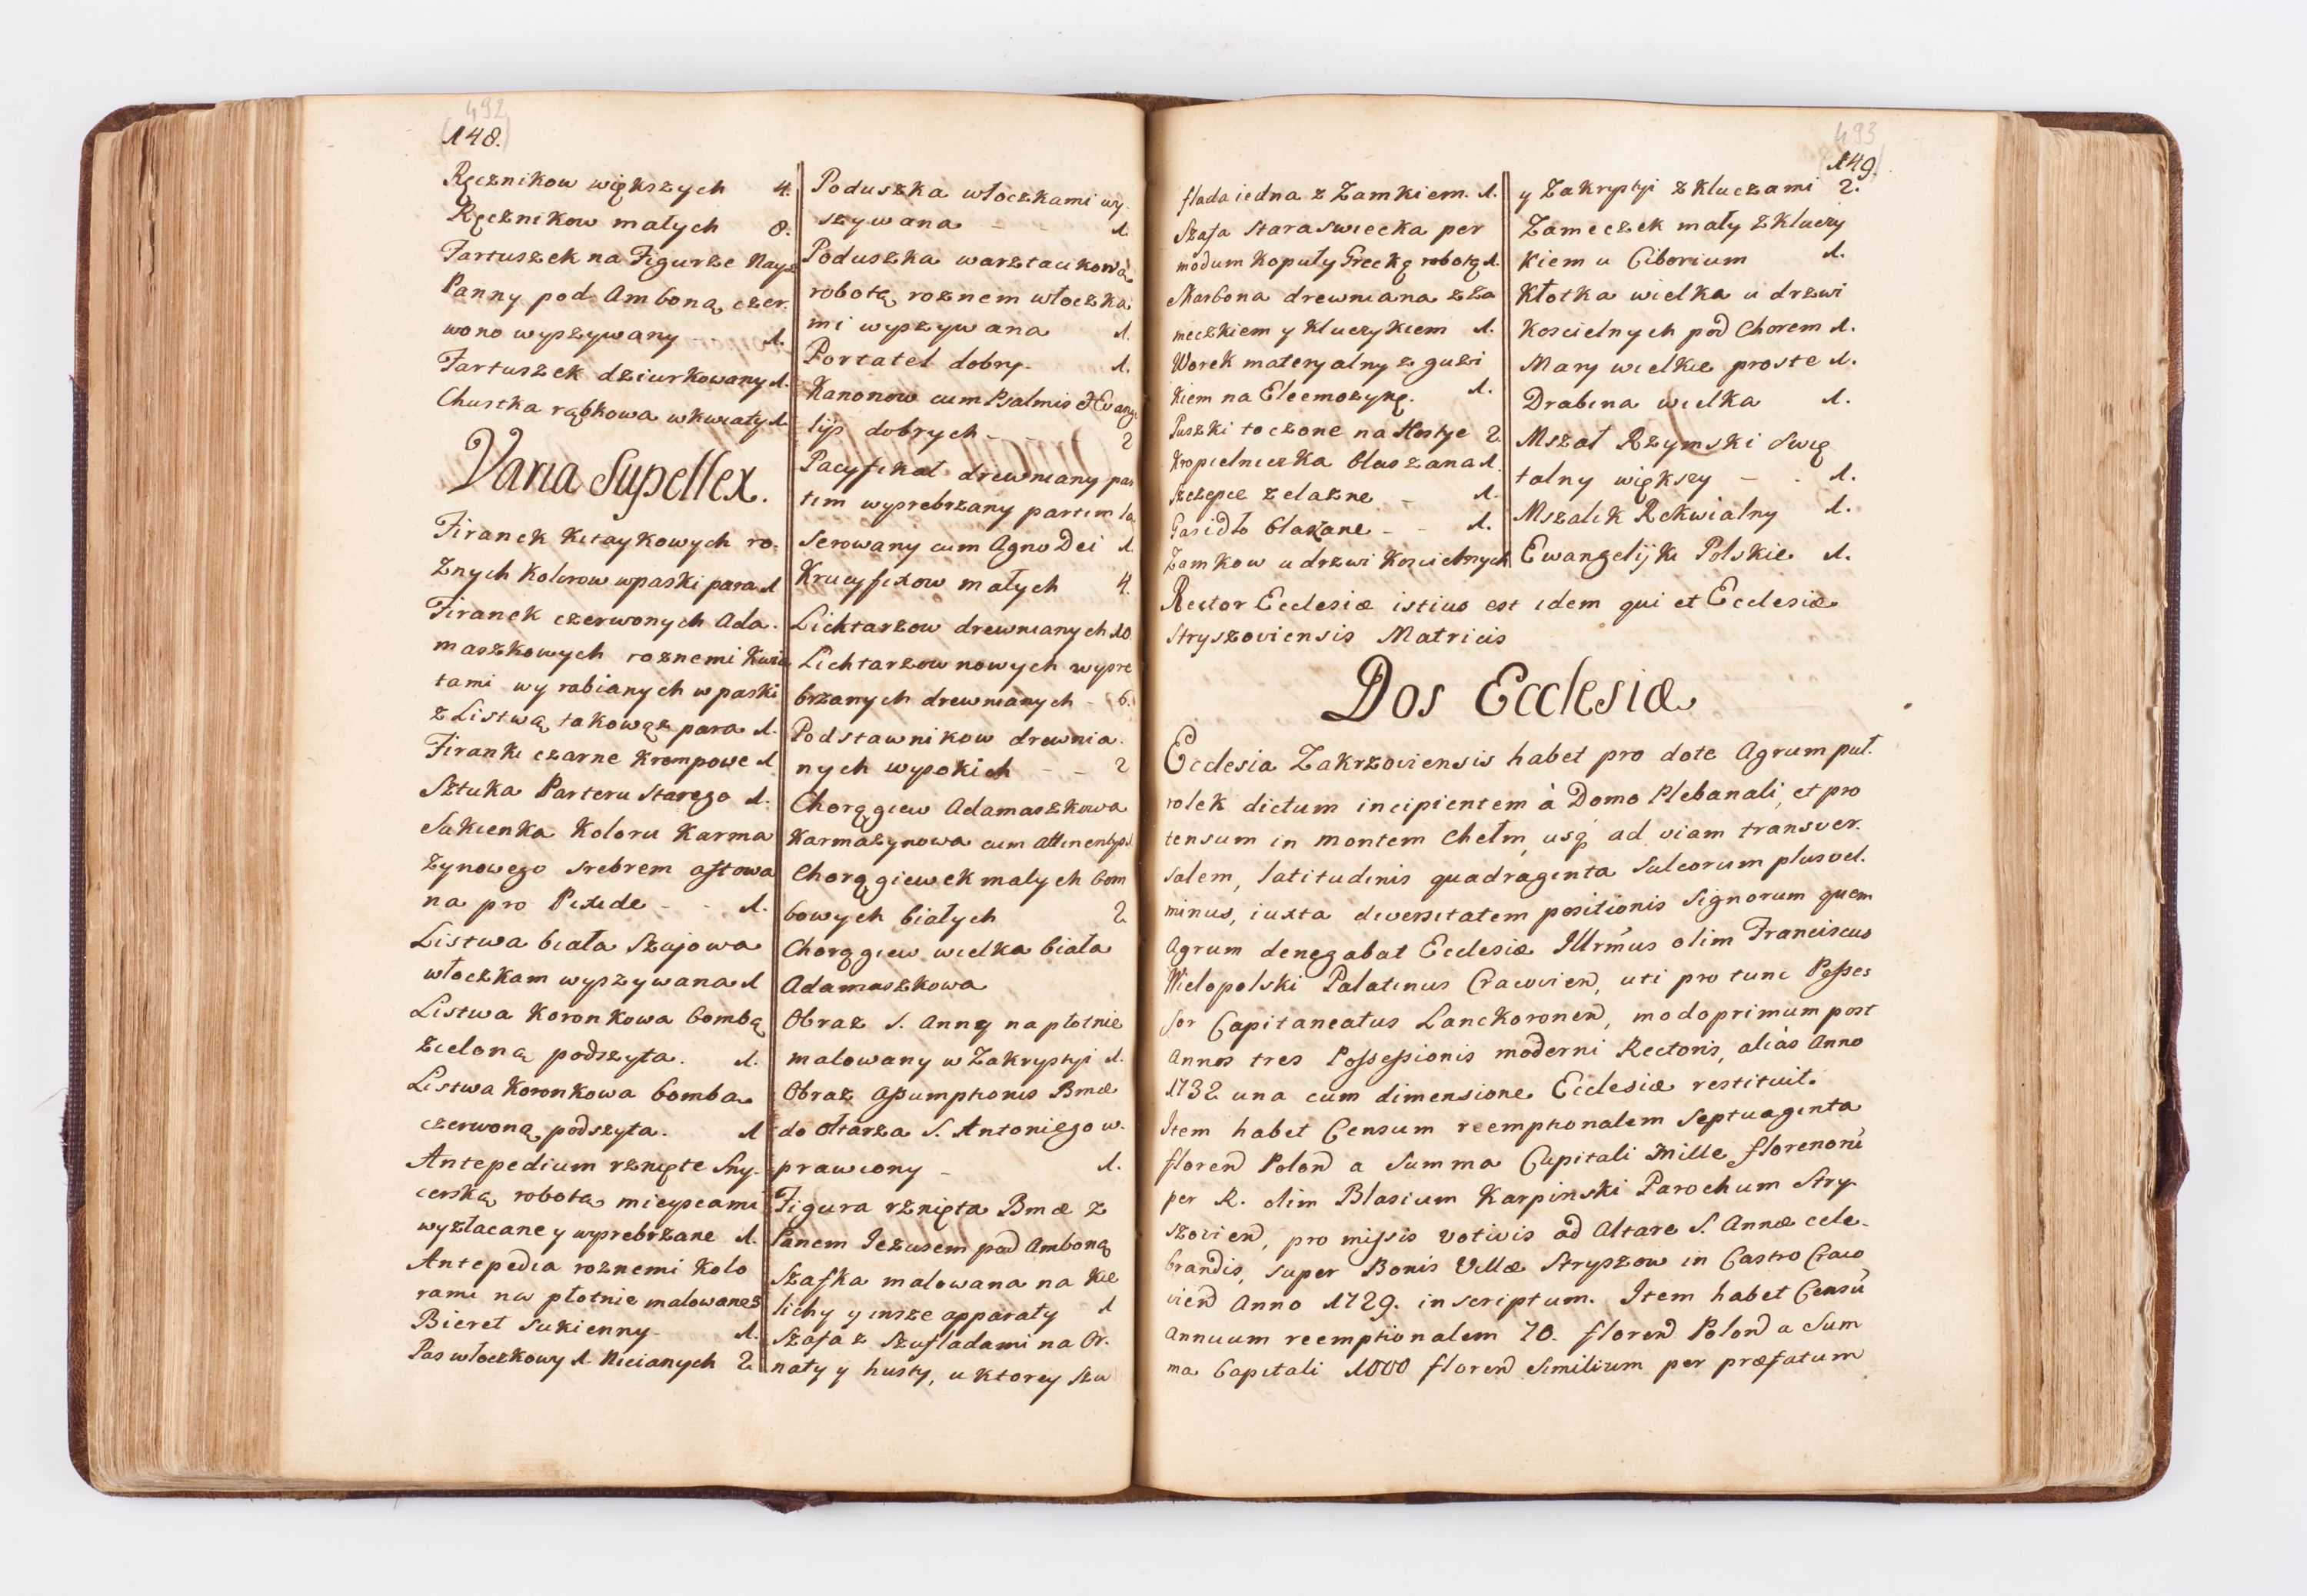 492
148.
Ręcznikow większych 4.
Ręcznikow małych 8.
Fartuszek na Figurze Nays
Panny pod Amboną czer.
wono wyszywany - - 1.
Fartuszek dziurkowany 1.
Chustka rąbkowa w kwiaty 1
Varia Supellex.
Firanek Kitaykowych ro.
żnych Kolorow w paski para 1
Firanek czerwonych Ada.
maszkowych roznemi Kwia
tami wyrabianych w paski
z Listwą takowąż para 1.
Firanki czarne Krompowe 1
Sztuka Parteru starego 1.
Sukienka Koloru Karma
zynowego srebrem aftowa
na pro Pixide - - 1.
Listwa biała Szujowa
włoczkam wyszywana 1
Listwa Koronkowa bombą
zieloną podszyta. 1.
Listwa Koronkowa bomba
czerwoną podszyta. 1
Antepedium rznięte Sny-
cerską robotą mieyscami
wyzłacane y wysrebrzane 1.
Antepedia roznemi Kolo
rami na płotnie malowane 3
Bieret Sukienny - 1.
Pas włoczkowy 1. Nicianych 2
Poduszka włoczkami wy.
szywana - - 1.
Poduszka warztatkową
robotą roznem włoczka
mi wyszywana 1.
Portatel dobry. 1.
Kanonow cum Psalmis et Evange
lijs dobrych - - 2
Pacyfikał drewniany par
tim wysrebrzany partim la
serowany cum Agno Dei 1.
Krucyfixow małych 4.
Lichtarzow drewnianych 10
Lichtarzow nowych wysre
brzanych drewnianych - 6.
Podstawnikow drewnia.
nych wysokich - - 2
Chorągiew Adamaszkowa
Karmazynowa cum Attinentys 1
Chorągiewek małych bom
bowych białych 2
Chorągiew wielka biała
Adamaszkowa
Obraz S. Anny na płotnie
malowany w Zakrystyi 1.
Obraz Assumptionis Bmæ
do Ołtarza S. Antoniego w.
prawiony - 1.
Figura rznięta Bmæ z
Panem Jezusem pod Amboną
Szafka malowana na Kie
lichy y insze apparaty 1
Szafa z Szufladami na Or.
naty y husty, u ktorey szu
493
149.
flada iedna z Zamkiem. 1.
Szafa staraswiecka per
modum Kopuły Grecką robotą 1.
Skarbona drewniana z Za
meczkiem y Kluczykiem 1.
Worek materyalny z guzi
kiem na Eleemozynę. 1.
Puszki toczone na Hostye 2.
Kropielniczka blaszana 1.
Szczypce zelazne - 1.
Gasidło blaszane - - 1.
Zamkow u drzwi Koscielnych
y Zakrystyi z Kluczami 2.
Zameczek mały z Kluczy
kiem u Ciborium 1.
Kłotka wielka u drzwi
Koscielnych pod Chorem 1.
Mary wielkie proste 1.
Drabina wielka 1.
Mszał Rzymski Swię
talny większy - . 1.
Mszalik Rekwialny 1.
Ewangelijki Polskie 1.
Rector Ecclesiæ istius est idem qui et Ecclesiæ
Stryszoviensis Matricis
Dos Ecclesiæ
Ecclesia Zakrzoviensis habet pro dote Agrum puł.
rolek dictum incipientem à Domo Plebanali, et pro
tensum in montem Chełm, usq; ad viam transver.
salem, latitudinis quadraginta Sulcorum plus vel.
minus, iuxta diversitatem positionis Signorum quem
Agrum denegabat Ecclesiæ Illrmus olim Franciscus
Wielopolski Palatinus Cracovien, uti pro tunc Posses
sor Capitaneatus Lanckoronen, modo primum post
Annos tres Possessionis moderni Rectoris, aliàs Anno
1732 una cum dimensione Ecclesiæ restituit.
Item habet Censum reemptionalem Septuaginta
floren Polon a Summa Capitali Mille florenorũ
per R. olim Blasium Karpinski Parochum Stry-
szovien, pro missis votivis ad Altare S. Annæ cele-
brandis, super Bonis Villæ Stryszow in Castro Craco
vien Anno 1729. inscriptum. Item habet Censũ
annuum reemptionalem 70. floren Polon a Sum
ma Capitali 1000 floren Similium per præfatum